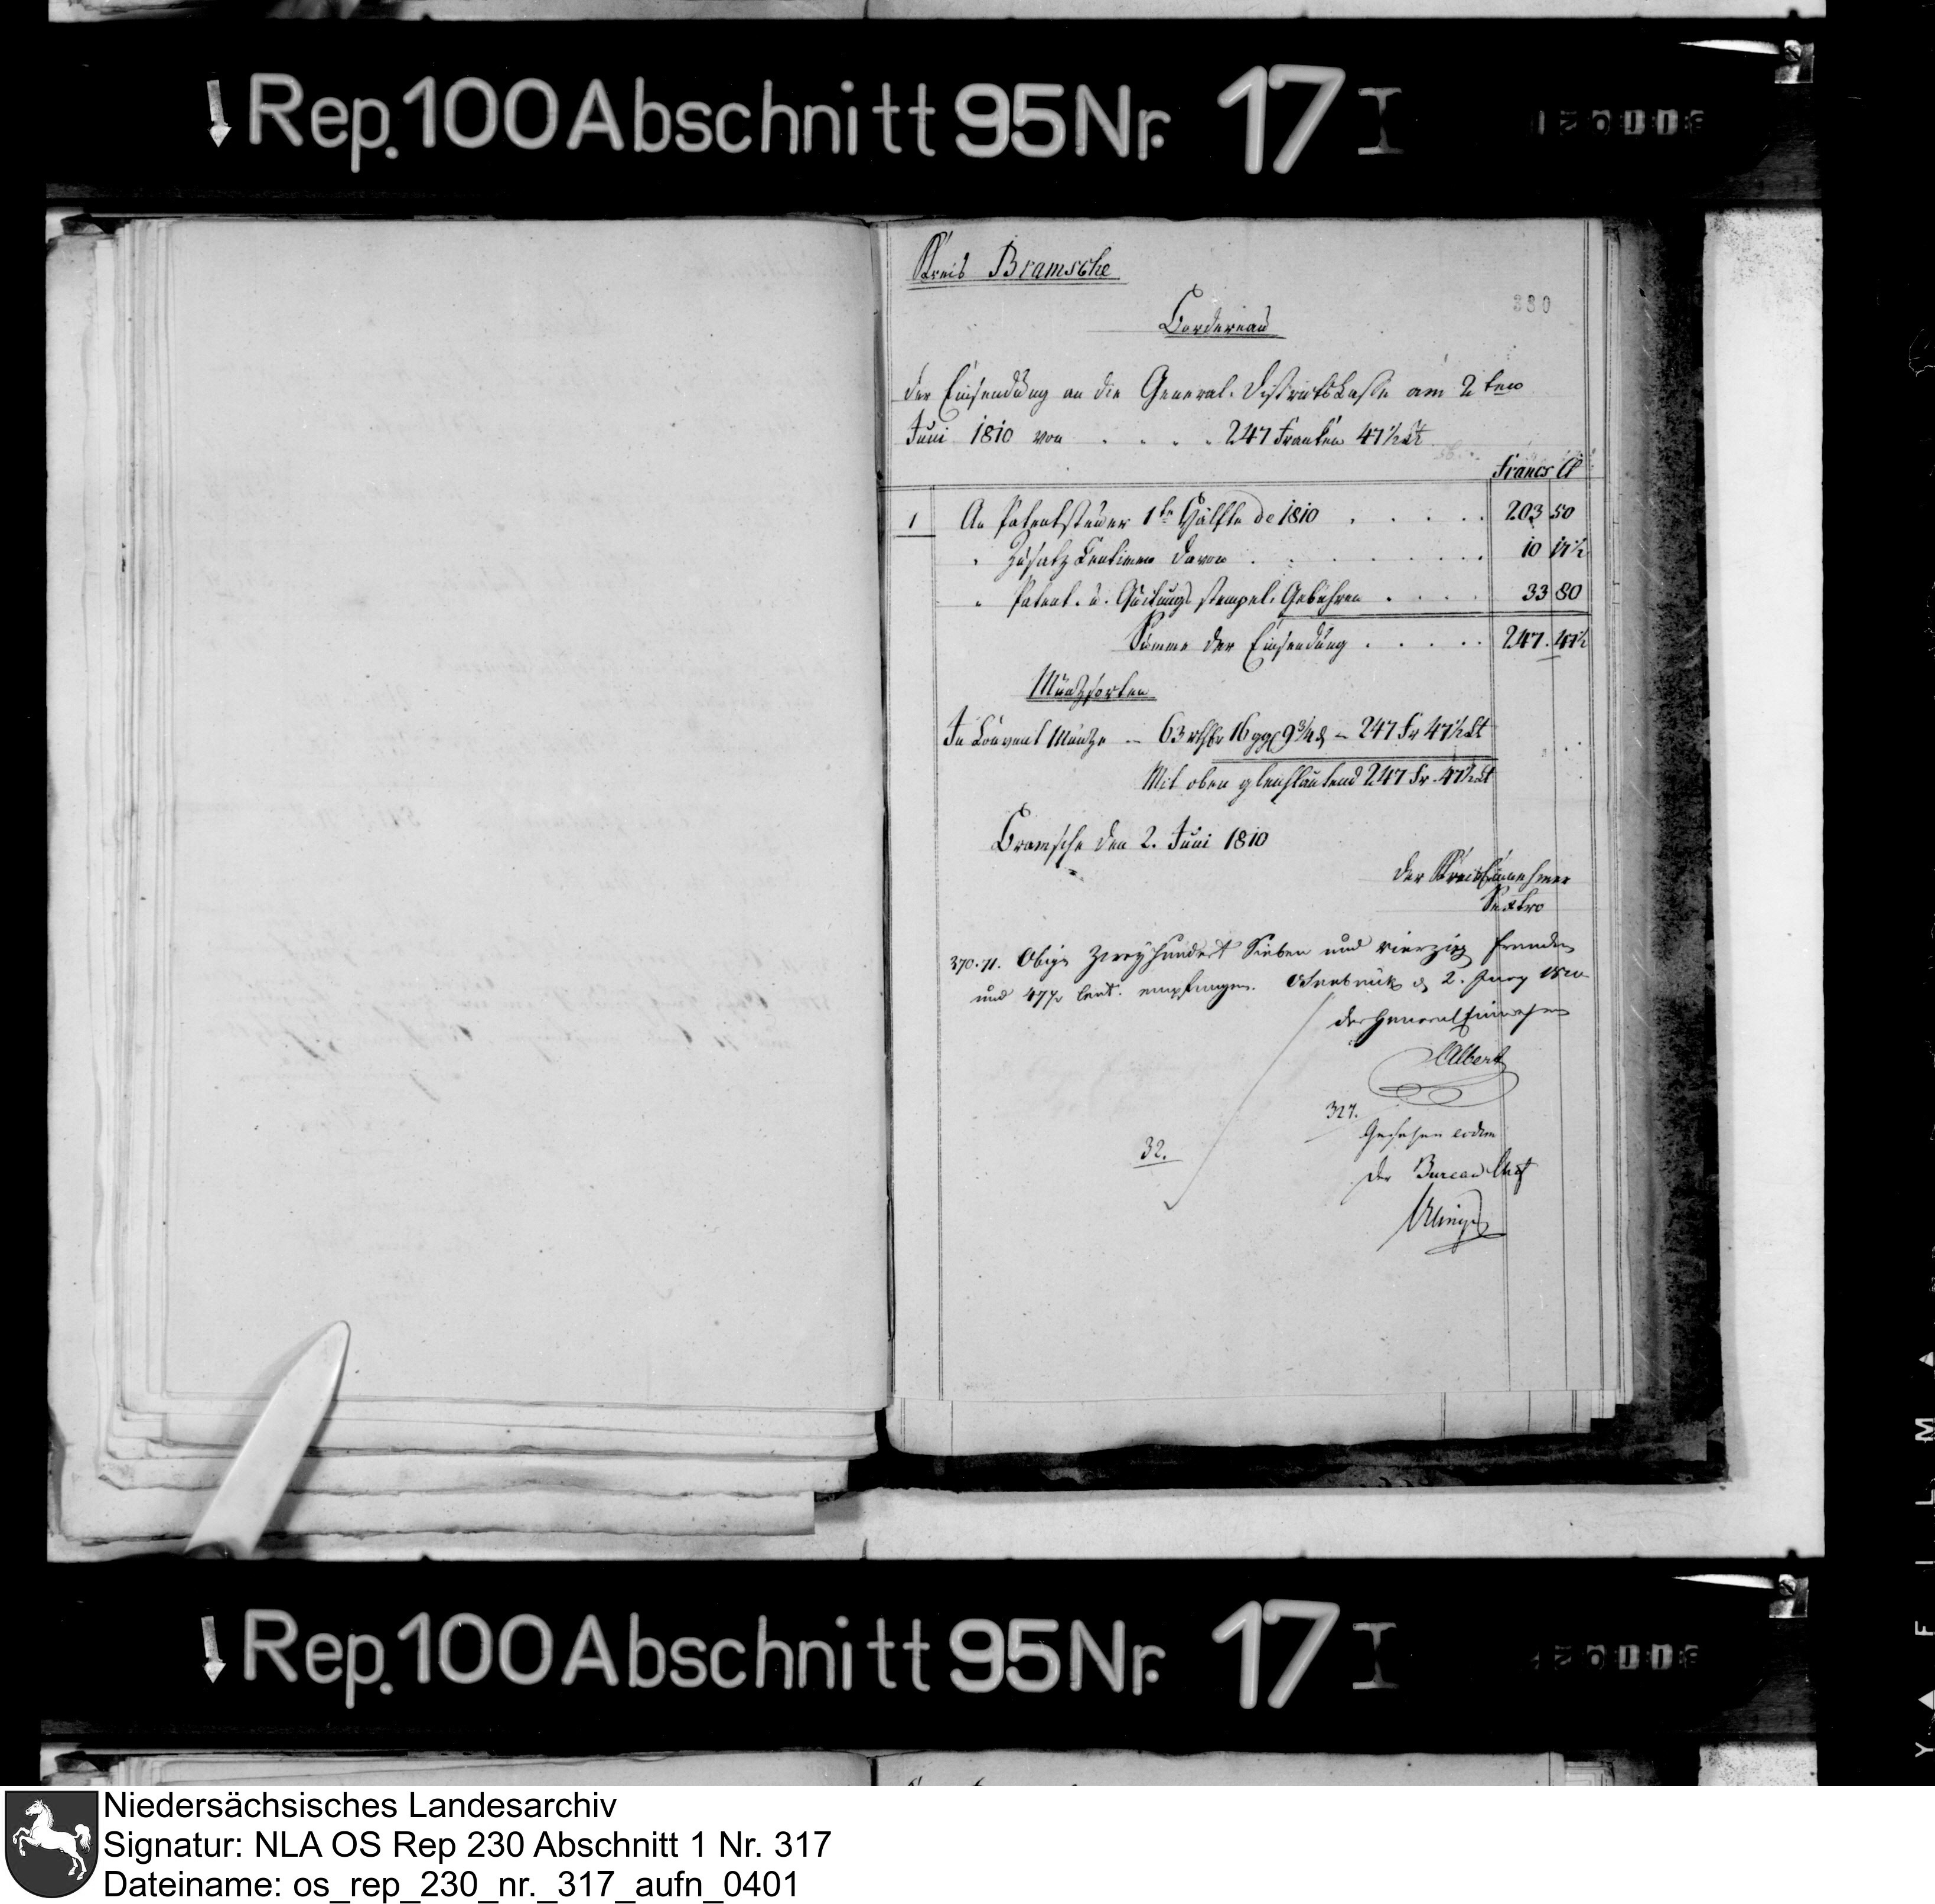 Rep. 100 Abschnitt 95 Nr. 17 I
Kreis Bramsche
380
Bordereau
der Einsendung an die General-Districtskasse am 2ten
Juni 1810 von . . . . 247 Franken 47½ Ct
Francs Ct
1 An Patentsteuer 1te Hälfte de 1810 . . . . . 203 50
" Zusatz Centimen davon . . . . . . . 10 17½
" Patent- u. Quitungs stempel-Gebühren . . . . 33 80
Summe der Einsendung . . . . . 247. 47½
Münzsorten
In Convent Münze — 63 rthlr 16 ggl 9¾ d — 247 Fr 47½ Ct
Mit oben gleichlautend 247 Fr. 47½ Ct
Bramsche den 2. Juni 1810
Der Kreiseinnehmer
Sextro
370.71. Obige Zweyhundert Sieben und vierzig Franken
und 47½ Cent. empfangen. Osnabrück d 2. Juny 1810
Der General Einnehmer
Albert
327.
Gesehen eodem
32.
Der Bureau Chef
Rep. 100 Abschnitt 95 Nr. 17 I
Niedersächsisches Landesarchiv
Signatur: NLA OS Rep 230 Abschnitt 1 Nr. 317
Dateiname: os_rep_230_nr._317_aufn_0401